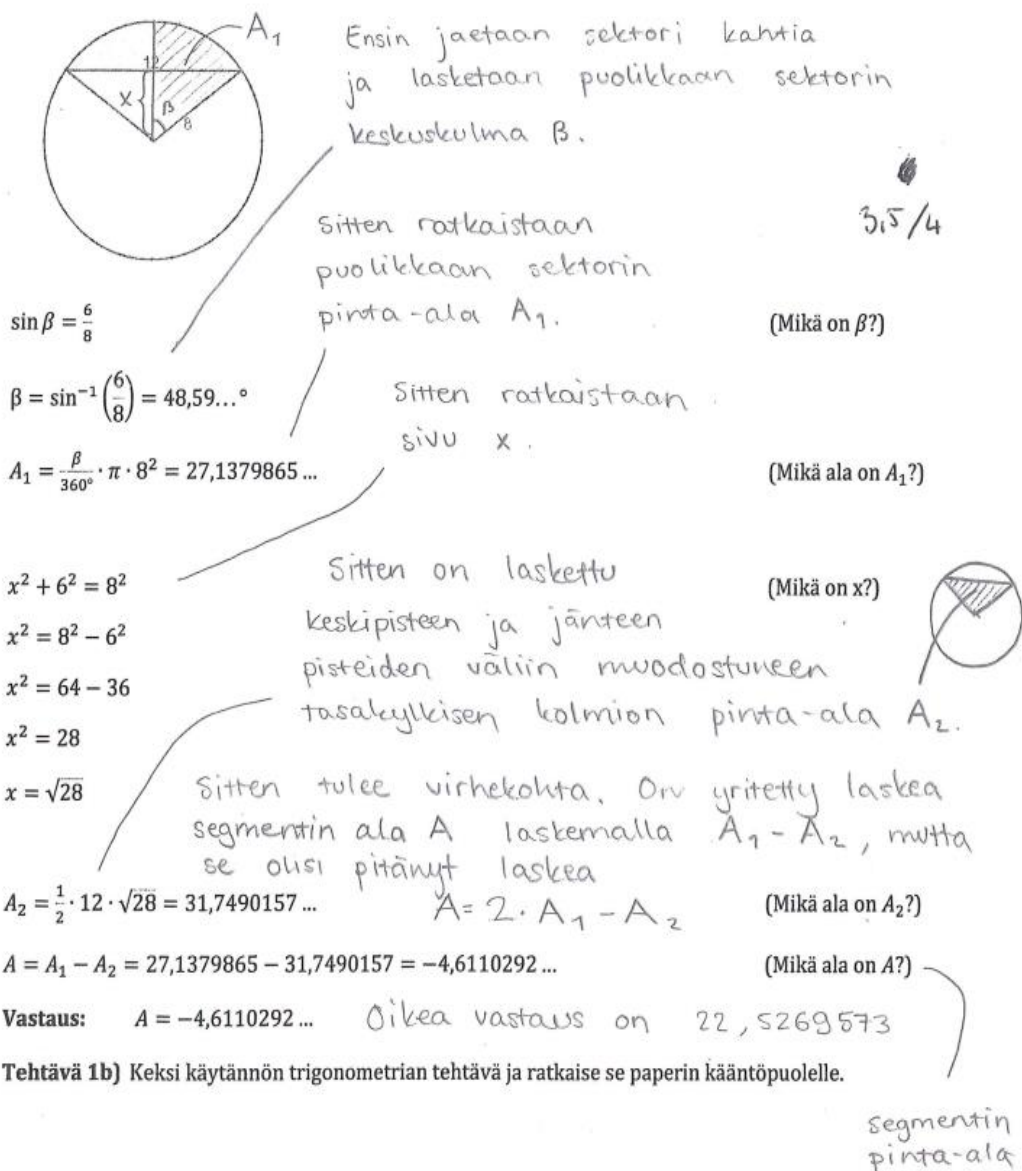 A₁
12
x
β
8
Ensin jaetaan sektori kahtia
ja lasketaan puolikkaan sektorin
keskuskulma β.
3,5/4
Sitten ratkaistaan
puolikkaan sektorin
pinta-ala A₁.
sin β = 6/8
(Mikä on β?)
β = sin⁻¹(6/8) = 48,59...°
Sitten ratkaistaan
sivu x.
A₁ = β/360° · π · 8² = 27,1379865 ...
(Mikä ala on A₁?)
x² + 6² = 8²
(Mikä on x?)
x² = 8² − 6²
x² = 64 − 36
x² = 28
x = √28
Sitten on laskettu
keskipisteen ja jänteen
pisteiden väliin muodostuneen
tasakylkisen kolmion pinta-ala A₂.
Sitten tulee virhekohta. On yritetty laskea
segmentin ala A laskemalla A₁ - A₂, mutta
se olisi pitänyt laskea
A = 2 · A₁ - A₂
A₂ = 1/2 · 12 · √28 = 31,7490157 ...
(Mikä ala on A₂?)
A = A₁ − A₂ = 27,1379865 − 31,7490157 = −4,6110292 ...
(Mikä ala on A?)
Vastaus: A = −4,6110292 ... Oikea vastaus on 22,5269573
Tehtävä 1b) Keksi käytännön trigonometrian tehtävä ja ratkaise se paperin kääntöpuolelle.
segmentin
pinta-ala